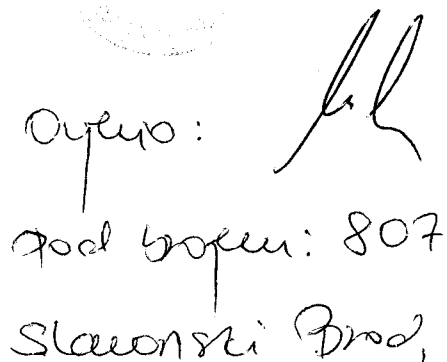 Ovjera:
pod brojem: 807
Slavonski Brod,